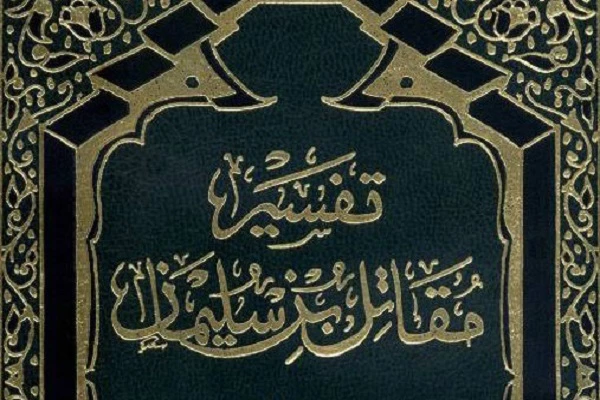 تفسير
مقاتل بن سليمان